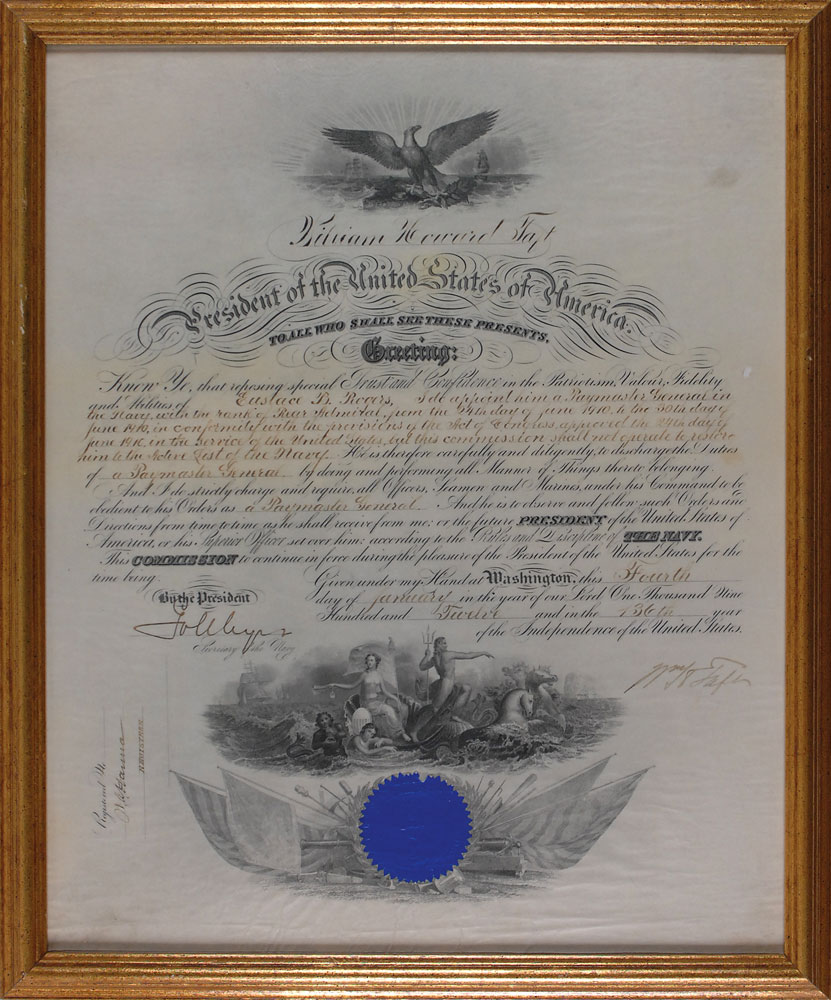 William Howard Taft
President of the United States of America.
TO ALL WHO SHALL SEE THESE PRESENTS,
Greeting:
Know Ye, that reposing special Trust and Confidence in the Patriotism, Valour, Fidelity
and Abilities of Eustace B. Rogers, I do appoint him a Paymaster General in
the Navy, with the rank of Rear Admiral, from the 24th day of June 1910, to the 30th day of
June 1910, in conformity with the provisions of the Act of Congress, approved the 29th day of
June 1910, in the Service of the United States, but this commission shall not operate to restore
him to the Active List of the Navy. He is therefore carefully and diligently, to discharge the Duties
of a Paymaster General by doing and performing all Manner of Things thereto belonging.
And I do strictly charge and require, all Officers, Seamen and Marines, under his Command to be
obedient to his Orders as a Paymaster General. And he is to observe and follow such Orders and
Directions from time to time as he shall receive from me, or the future PRESIDENT of the United States of
America, or his Superior Officer set over him, according to the Rules and Discipline of THE NAVY.
This COMMISSION to continue in force during the pleasure of the President of the United States for the
time being.
Given under my Hand at Washington, this Fourth
By the President
day of January in the year of our Lord One Thousand Nine
Hundred and Twelve and in the 136th year
of the Independence of the United States.
Secretary of the Navy
Wm H Taft
Registered No.
REGISTRAR.